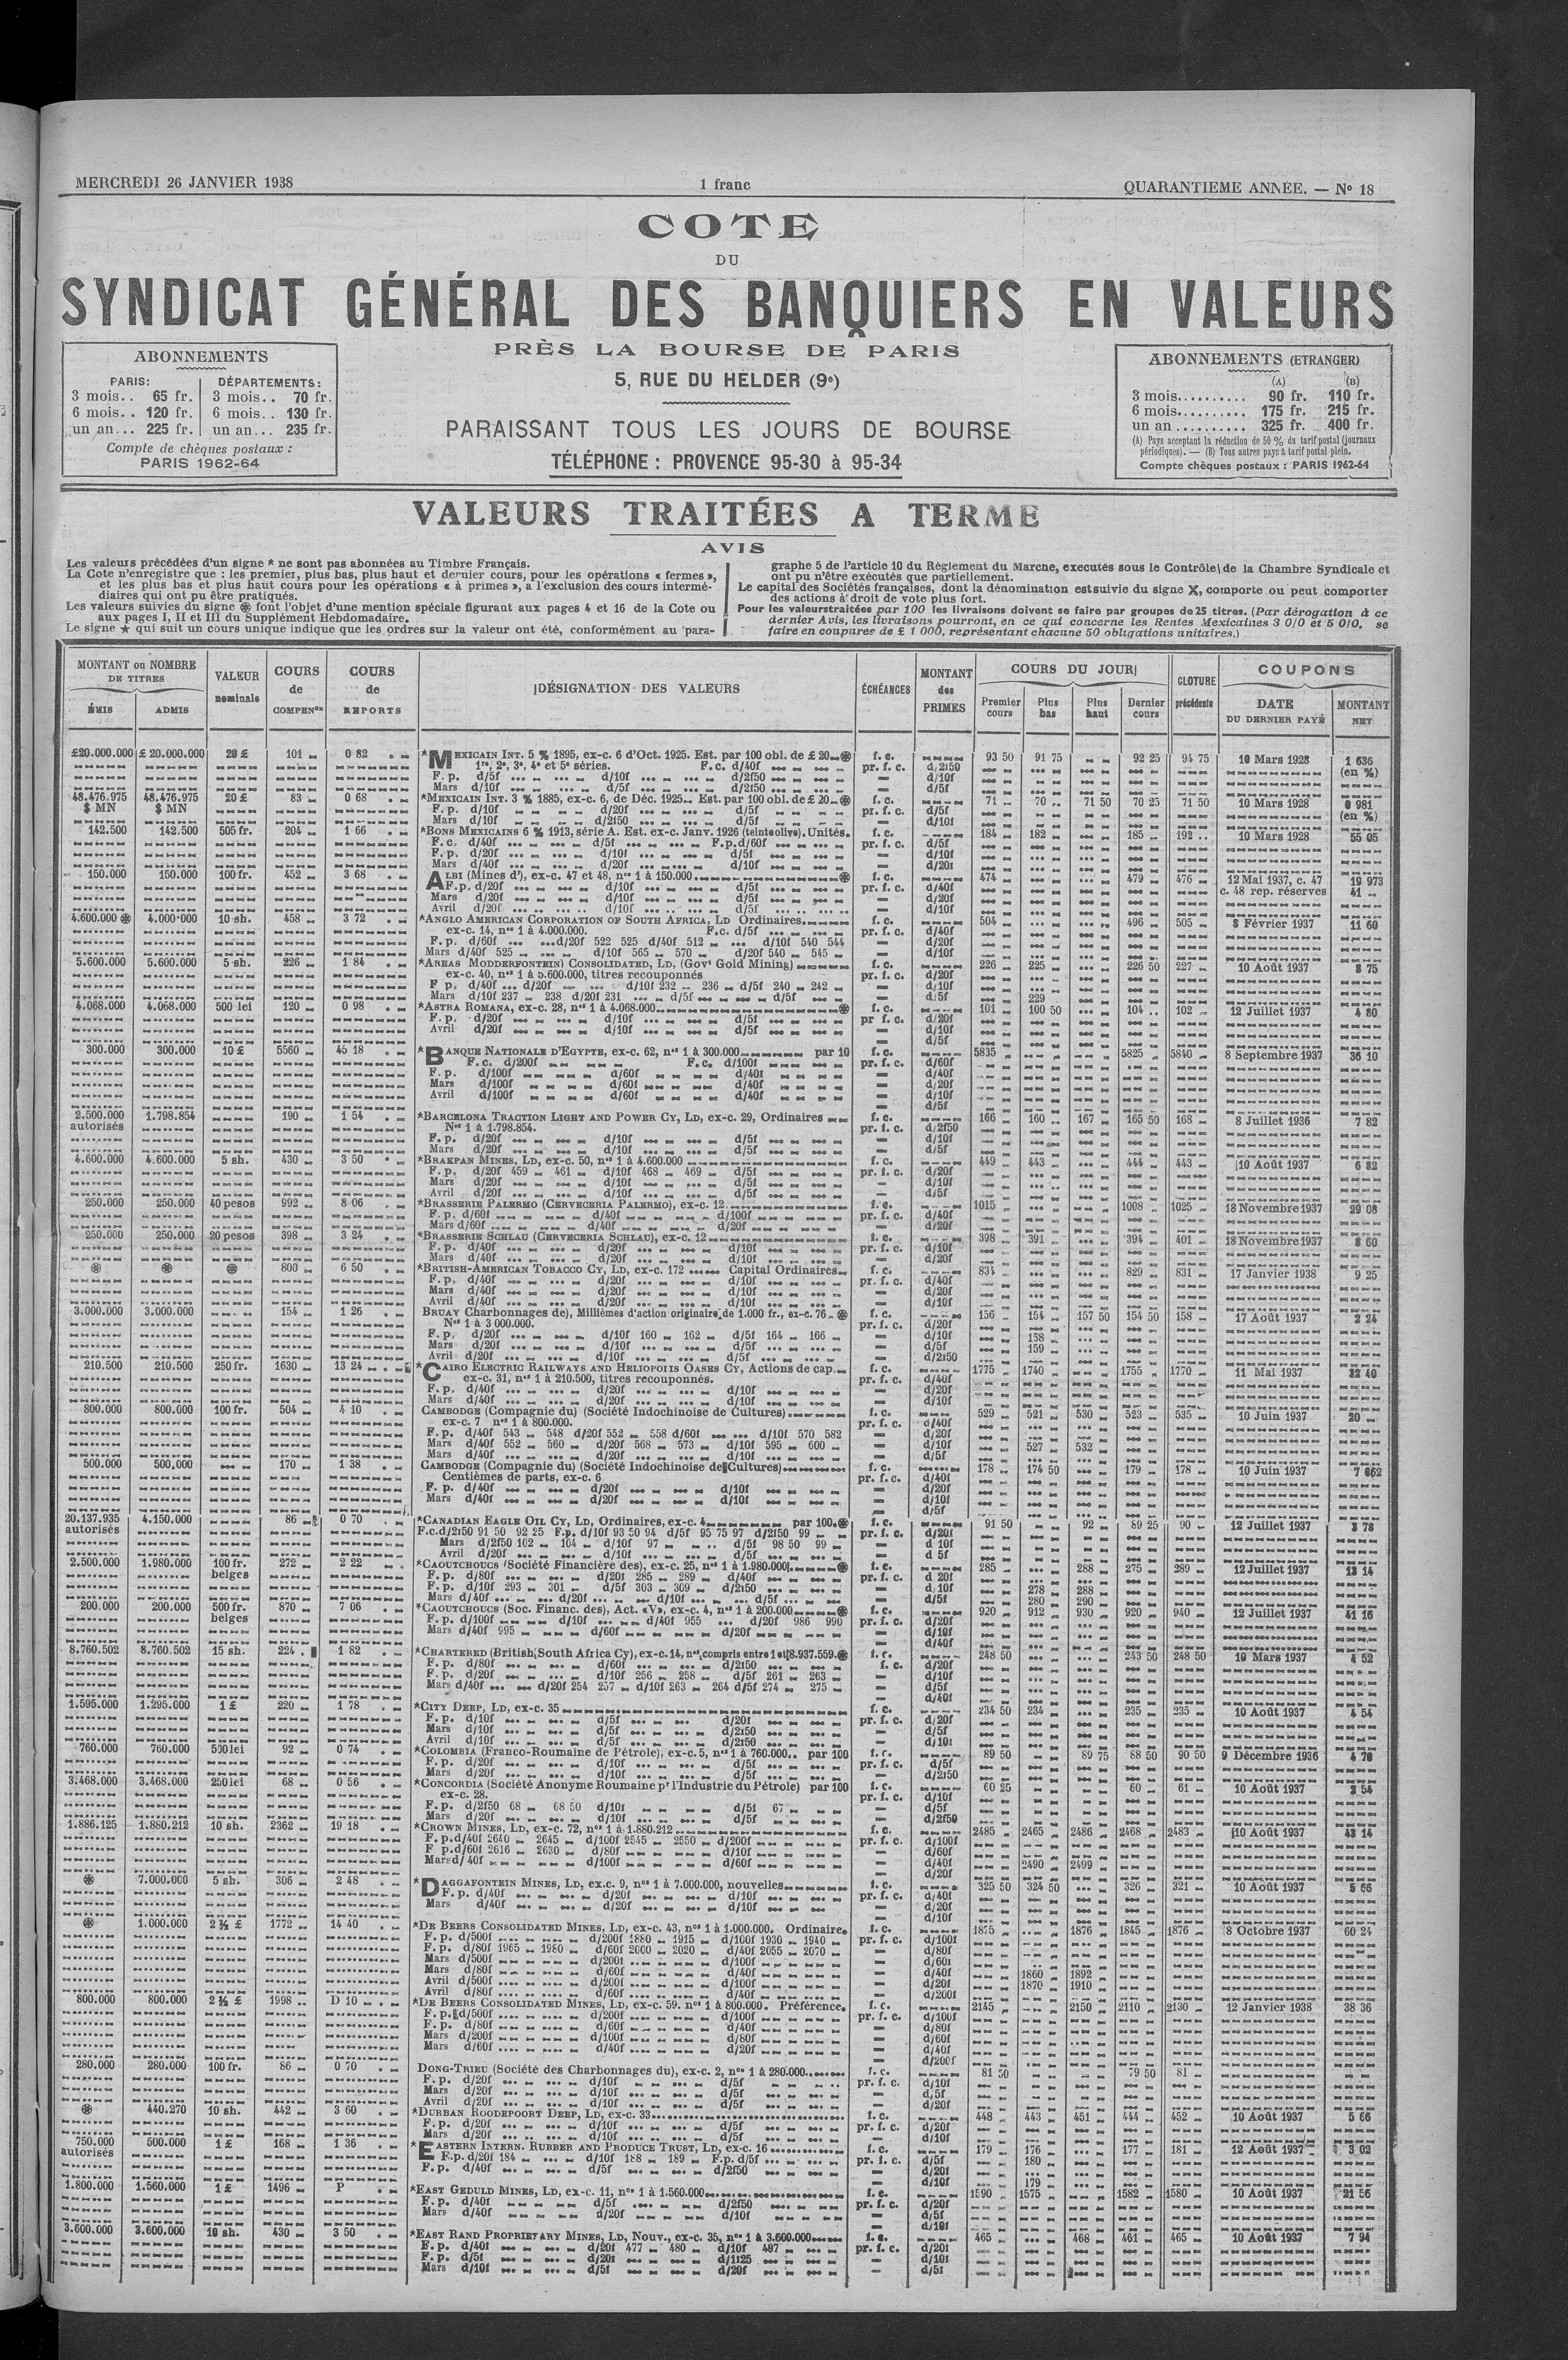 MERCREDI 26 JANVIER 1938
1 franc
QUARANTIEME ANNÉE. — No 18
COTE
DU
SYNDICAT GÉNÉRAL DES BANQUIERS EN VALEURS
PRÈS LA BOURSE DE PARIS
5, RUE DU HELDER (9e)
PARAISSANT TOUS LES JOURS DE BOURSE
TÉLÉPHONE : PROVENCE 95-30 à 95-34
ABONNEMENTS
PARIS: DÉPARTEMENTS:
3 mois.. 65 fr. 3 mois.. 70 fr.
6 mois.. 120 fr. 6 mois.. 130 fr.
un an... 225 fr. un an... 235 fr.
Compte de chèques postaux :
PARIS 1962-64
ABONNEMENTS (ETRANGER)
(A) (B)
3 mois.......... 90 fr. 110 fr.
6 mois.......... 175 fr. 215 fr.
un an .......... 325 fr. 400 fr.
(A) Pays acceptant la réduction de 50 % du tarif postal (journaux
périodiques). — (B) Tous autres pays à tarif postal plein.
Compte chèques postaux : PARIS 1962-64
VALEURS TRAITÉES A TERME
AVIS
Les valeurs précédées d'un signe * ne sont pas abonnées au Timbre Français.
La Cote n'enregistre que : les premier, plus bas, plus haut et dernier cours, pour les opérations « fermes »,
et les plus bas et plus haut cours pour les opérations « à primes », a l'exclusion des cours intermé-
diaires qui ont pu être pratiqués.
Les valeurs suivies du signe ֍ font l'objet d'une mention spéciale figurant aux pages 4 et 16 de la Cote ou
aux pages I, II et III du Supplément Hebdomadaire.
Le signe ★ qui suit un cours unique indique que les ordres sur la valeur ont été, conformément au para-
graphe 5 de l'article 10 du Règlement du Marche, executés sous le Contrôle de la Chambre Syndicale et
ont pu n'être exécutés que partiellement.
Le capital des Sociétés françaises, dont la dénomination est suivie du signe X, comporte ou peut comporter
des actions à droit de vote plus fort.
Pour les valeurs traitées par 100 les livraisons doivent se faire par groupes de 25 titres. (Par dérogation à ce
dernier Avis, les livraisons pourront, en ce qui concerne les Rentes Mexicaines 3 0/0 et 5 0/0, se
faire en coupures de £ 1 000, représentant chacune 50 obligations unitaires.)
MONTANT ou NOMBRE DE TITRES
ÉMIS ADMIS
VALEUR nominale
COURS de COMPENon
COURS de REPORTS
DÉSIGNATION DES VALEURS
ÉCHÉANCES
MONTANT des PRIMES
COURS DU JOUR
Premier cours Plus bas Plus haut Dernier cours
CLOTURE précédente
COUPONS
DATE DU DERNIER PAYÉ
MONTANT NET
£20.000.000 £ 20.000.000 20 £ 101 0 82 *MEXICAIN INT. 5 % 1895, ex-c. 6 d'Oct. 1925. Est. par 100 obl. de £ 20 f. c. 93 50 91 75 92 25 94 75 10 Mars 1928 1 636
1re, 2e, 3e, 4e et 5e séries. F.c. d/40f pr. f. c. d/2f50 (en %)
F. p. d/5f d/10f d/2f50 d/10f
Mars d/10f d/5f d/2f50 d/5f
48.476.975 48.476.975 20 £ 83 0 68 *MEXICAIN INT. 3 % 1885, ex-c. 6, de Déc. 1925 Est. par 100 obl. de £ 20 f. c. 71 70 71 50 70 25 71 50 10 Mars 1928 0 981
$ MN $ MN F. p. d/10f d/20f d/5f pr. f. c. d/5f (en %)
Mars d/10f d/2f50 d/5f d/10f
142.500 142.500 505 fr. 204 1 66 *BONS MEXICAINS 6 % 1913, série A. Est. ex-c. Janv. 1926 (teinte olive). Unités. f. c. 184 182 185 192 10 Mars 1928 55 05
F. c. d/40f d/5f F.p.d/60f pr. f. c. d/5f
F. p. d/20f d/10f d/5f d/10f
Mars d/40f d/20f d/10f d/20f
150.000 150.000 100 fr. 452 3 68 ALBI (Mines d'), ex-c. 47 et 48, nos 1 à 150.000 f. c. 474 479 476 12 Mai 1937, c. 47 19 973
F. p. d/20f d/10f d/5f pr. f. c. d/40f c. 48 rep. réserves 41
Mars d/20f d/10f d/5f d/20f
Avril d/20f d/10f d/5f d/10f
4.600.000 4.000.000 10 sh. 458 3 72 *ANGLO AMERICAN CORPORATION OF SOUTH AFRICA, LD Ordinaires f. c. 504 496 505 8 Février 1937 11 60
ex-c. 14, nos 1 à 4.000.000. F.c. d/5f pr. f. c. d/40f
F. p. d/60f d/20f 522 525 d/40f 512 d/10f 540 544 d/20f
Mars d/40f 525 d/10f 565 570 d/20f 540 545 d/10f
5.600.000 5.600.000 5 sh. 226 1 84 *AREAS MODDERFONTEIN) CONSOLIDATED, LD, (Govt Gold Mining) f. c. 226 225 226 50 227 10 Août 1937 8 75
ex-c. 40, nos 1 à 5.600.000, titres recouponnés pr. f. c. d/20f
F p. d/40f d/20f d/10f 232 236 d/5f 240 242 d/10f
Mars d/10f 237 238 d/20f 231 d/5f d/5f d/5f 229
4.068.000 4.068.000 500 lei 120 0 98 *ASTRA ROMANA, ex-c. 28, nos 1 à 4.068.000 f. c. 101 100 50 104 102 12 Juillet 1937 4 80
F. p. d/20f d/10f d/5f pr f. c. d/20f
Avril d/20f d/10f d/5f d/10f
d/5f
300.000 300.000 10 £ 5560 45 18 *BANQUE NATIONALE D'EGYPTE, ex-c. 62, nos 1 à 300.000 par 10 f. c. 5835 5825 5840 8 Septembre 1937 36 10
F. c. d/200f F. c. d/100f pr. f. c. d/60f
F. p. d/100f d/60f d/40f d/40f
Mars d/100f d/60f d/40f d/20f
Avril d/100f d/60f d/40f d/10f
d/5f
2.500.000 1.798.854 190 1 54 *BARCELONA TRACTION LIGHT AND POWER CY, LD, ex-c. 29, Ordinaires f. c. 166 160 167 165 50 168 8 Juillet 1936 7 82
autorisés Nos 1 à 1.798.854. pr. f. c. d/2f50
F. p. d/20f d/10f d/5f d/10f
Mars d/20f d/10f d/5f d/5f
4.600.000 4.600.000 5 sh. 430 3 50 *BRAKPAN MINES, LD, ex-c. 50, nos 1 à 4.600.000 f. c. 449 443 444 443 10 Août 1937 6 82
F. p. d/20f 459 461 d/10f 468 469 d/5f pr. f. c. d/20f
Mars d/20f d/10f d/5f d/10f
Avril d/20f d/10f d/5f d/5f
250.000 250.000 40 pesos 992 8 06 *BRASSERIE PALERMO (CERVECERIA PALERMO), ex-c. 12 f. c. 1015 1008 1025 18 Novembre 1937 29 08
F. p. d/60f d/40f d/100f pr. f. c. d/40f
Mars d/60f d/40f d/20f d/20f
250.000 250.000 20 pesos 398 3 24 *BRASSERIE SCHLAU (CERVECERIA SCHLAU), ex-c. 12 f. c. 398 391 394 401 18 Novembre 1937 8 60
F. p. d/40f d/20f d/10f pr. f. c. d/10f
Mars d/40f d/20f d/10f d/20f
800 6 50 *BRITISH-AMERICAN TOBACCO CY, LD, ex-c. 172 Capital Ordinaires f. c. 834 829 831 17 Janvier 1938 9 25
F. p. d/40f d/20f d/10f pr. f. c. d/40f
Mars d/40f d/20f d/10f d/20f
Avril d/40f d/20f d/10f d/10f
3.000.000 3.000.000 154 1 26 BRUAY Charbonnages de), Millièmes d'action originaire de 1.000 fr., ex-c. 76 f. c. 156 154 157 50 154 50 158 17 Août 1937 2 24
Nos 1 à 3 000.000. pr. f. c. d/20f
F. p. d/20f d/10f 160 162 d/5f 164 166 d/10f 158
Mars d/20f d/10f d/5f d/5f 159
Avril d/20f d/10f d/5f d/2f50
210.500 210.500 250 fr. 1630 13 24 *CAIRO ELECTRIC RAILWAYS AND HELIOPOLIS OASES CY, Actions de cap. f. c. 1775 1740 1755 1770 11 Mai 1937 32 40
ex-c. 31, nos 1 à 210.500, titres recouponnés. pr. f. c. d/40f
F. p. d/40f d/20f d/10f d/20f
Mars d/40f d/20f d/10f d/10f
800.000 800.000 100 fr. 504 4 10 CAMBODGE (Compagnie du) (Société Indochinoise de Cultures) f. c. 529 521 530 523 535 10 Juin 1937 20
ex-c. 7 nos 1 à 800.000. pr. f. c. d/40f
F. p. d/40f 543 548 d/20f 552 558 d/60f d/10f 570 582 d/20f
Mars d/40f 552 560 d/20f 568 573 d/10f 595 600 d/10f 527 532
Mars d/40f d/20f d/10f d/5f
500.000 500.000 170 1 38 CAMBODGE (Compagnie du) (Société Indochinoise de Cultures) f. c. 178 174 50 179 178 10 Juin 1937 7 662
Centièmes de parts, ex-c. 6 pr. f. c. d/40f
F. p. d/40f d/20f d/10f d/20f
Mars d/40f d/20f d/10f d/10f
d/5f
20.137.935 4.150.000 86 0 70 *CANADIAN EAGLE OIL CY, LD, Ordinaires, ex-c. 4 par 100 f. c. 91 50 92 89 25 90 12 Juillet 1937 3 78
autorisés F.c.d/2f50 91 50 92 25 F.p. d/10f 93 50 94 d/5f 95 75 97 d/2f50 99 pr. f. c. d/20f
Mars d/2f50 102 104 d/10f 97 d/5f 98 50 99 d 10f
Avril d/20f d/10f d/5f d 5f
2.500.000 1.980.000 100 fr. 272 2 22 *CAOUTCHOUCS (Société Financière des), ex-c. 25, nos 1 à 1.980.000 f. c. 285 288 275 289 12 Juillet 1937 13 14
belges F. p. d/80f d/20f 285 289 d/40f pr. f. c. d 20f
F. p. d/10f 293 301 d/5f 303 309 d/2f50 d/10f 278 288
Mars d/40f d/20f d/10f d/5f d/5f 280 290
200.000 200.000 500 fr. 870 7 06 *CAOUTCHOUCS (Soc. Financ. des), Act. «V», ex-c. 4, nos 1 à 200.000 f. c. 920 912 930 920 940 12 Juillet 1937 41 16
belges F. p. d/100f d/10f d/40f 955 d/20f 986 990 pr. f. c. d/20f
Mars d/40f 995 d/60f d/20f d/10f
d/40f
8.760.502 8.760.502 15 sh. 224 1 82 *CHARTERED (British South Africa Cy), ex-c. 14, nos compris entre 1 et 8.937.559. f. c. 248 50 243 50 248 50 10 Mars 1937 4 52
F. p. d/80f d/60f d/2f50 f. c. d/20f
F. p. d/20f d/10f 256 258 d/5f 261 263 d/10f
Mars d/40f d/20f 254 257 d/10f 263 264 d/5f 274 275 d/5f
d/40f
1.595.000 1.295.000 1 £ 220 1 78 *CITY DEEP, LD, ex-c. 35 f. c. 234 50 234 235 235 10 Août 1937 4 54
F. p. d/10f d/5f d/20f pr. f. c. d/20f
Mars d/10f d/5f d/2f50 d/5f
Avril d/10f d/5f d/2f50 d/10f
760.000 760.000 500 lei 92 0 74 *COLOMBIA (Franco-Roumaine de Pétrole), ex-c. 5, nos 1 à 760.000.. par 100 f. c. 89 50 89 75 88 50 90 50 9 Décembre 1936 4 70
F. p. d/20f d/10f d/5f pr. f. c. d/5f
Mars d/20f d/10f d/5f d/2f50
3.468.000 3.468.000 250 lei 68 0 56 *CONCORDIA (Société Anonyme Roumaine pr l'Industrie du Pétrole) par 100 f. c. 60 25 60 61 10 Août 1937 2 54
ex-c. 28. pr. f. c. d/10f
F. p. d/2f50 68 68 50 d/10f d/5f 67 d/5f
Mars d/20f d/10f d/5f d/2f50
1.886.125 1.880.212 10 sh. 2362 19 18 *CROWN MINES, LD, ex-c. 72, nos 1 à 1.880.212 f. c. 2485 2465 2486 2468 2483 10 Août 1937 43 14
F. p.d/40f 2640 2645 d/100f 2545 2550 d/200f pr. f. c. d/100f
F p.d/60f 2616 2630 d/80f d/10f d/60f
Mars d/ 40f d/100f d/60f d/40f 2490 2499
d/20f
7.000.000 5 sh. 306 2 48 *DAGGAFONTEIN MINES, LD, ex.c. 9, nos 1 à 7.000.000, nouvelles f. c. 325 50 324 50 326 321 10 Août 1937 5 66
F. p. d/40f d/20f d/10f pr. f. c. d/40f
Mars d/40f d/20f d/10f d/20f
d/10f
1.000.000 2 ½ £ 1772 14 40 *DE BEERS CONSOLIDATED MINES, LD, ex-c. 43, nos 1 à 1.000.000. Ordinaire. f. c. 1875 1876 1845 1876 8 Octobre 1937 60 24
F. p. d/500f d/200f 1880 1915 d/100f 1930 1940 pr. f. c. d/100f
F. p. d/80f 1965 1980 d/60f 2000 2020 d/40f 2055 2070 d/80f
Mars d/500f d/200f d/100f d/60f
Mars d/80f d/60f d/40f d/40f 1860 1892
Avril d/500f d/200f d/100f d/20f 1870 1910
Avril d/80f d/60f d/40f d/200f
800.000 800.000 2 ½ £ 1998 D 10 *DE BEERS CONSOLIDATED MINES, LD, ex-c. 59. nos 1 à 800.000. Préférence. f. c. 2145 2150 2110 2130 12 Janvier 1938 38 36
F. p. d/500f d/200f d/100f pr. f. c. d/100f
F. p. d/80f d/60f d/40f d/80f
Mars d/200f d/100f d/80f d/60f
Mars d/60f d/40f d/20f d/40f
d/200f
280.000 280.000 100 fr. 86 0 70 DONG-TRIEU (Société des Charbonnages du), ex-c. 2, nos 1 à 280.000 f. c. 81 50 79 50 81
F. p. d/20f d/10f d/5f pr. f. c. d/10f
Mars d/20f d/10f d/5f d/5f
Avril d/20f d/10f d/5f d/20f
440.270 10 sh. 442 3 60 *DURBAN ROODEPOORT DEEP, LD, ex-c. 33 f. c. 448 443 451 444 452 10 Août 1937 5 66
F. p. d/20f d/10f d/5f pr. f. c. d/20f
Mars d/20f d/10f d/5f d/10f
750.000 500.000 1 £ 168 1 36 *EASTERN INTERN. RUBBER AND PRODUCE TRUST, LD, ex-c. 16 f. c. 179 176 177 181 12 Août 1937 3 02
autorisés F.p. d/20f 184 d/10f 188 189 F.p. d/5f pr. f. c. d/5f 180
F. p. d/40f d/5f d/2f50 d/20f
d/10f 179
1.800.000 1.560.000 1 £ 1496 P *EAST GEDULD MINES, LD, ex-c. 11, nos 1 à 1.560.000 f. c. 1590 1575 1582 1580 10 Août 1937 21 56
F. p. d/40f d/5f d/2f50 pr. f. c. d/20f
Mars d/40f d/20f d/10f d/5f
d/10f
3.600.000 3.600.000 10 sh. 430 3 50 *EAST RAND PROPRIETARY MINES, LD, Nouv., ex-c. 35, nos 1 à 3.600.000 f. c. 465 468 461 465 10 Août 1937 7 94
F. p. d/40f d/20f 477 480 d/10f 487 pr. f. c. d/20f
F. p. d/5f d/20f d/1f25 d/10f
Mars d/10f d/5f d/20f d/5f